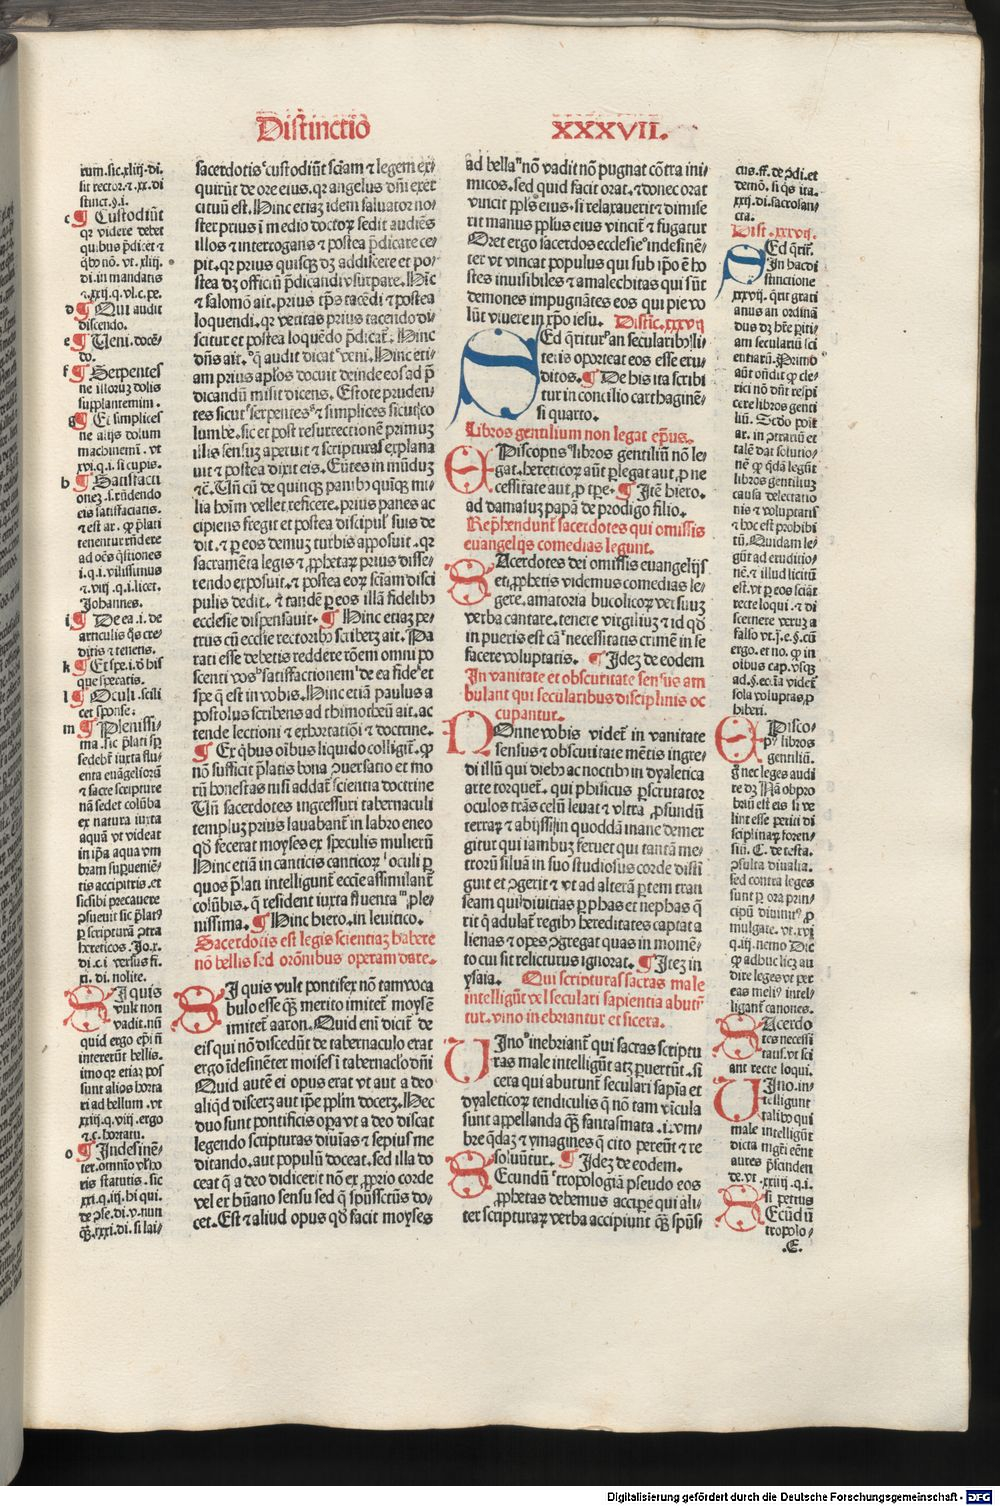 Distinctiō XXXVII.
rum.sic.xliij.di.
sit rector.⁊.xx.di
stinct.§.i.
c ¶ Custodiūt
qr videre debet
quibus p̄dicēt ⁊
q̄bꝰ nō. vt. xliij.
di.in mandatis
d ¶ Qui audit
discendo.
e ¶ Ueni.docē-
do.
f ¶ Serpentes
ne illoruȝ dolis
supplantemini.
g ¶ Et simplices
ne alijs dolum
machinemī. vt
xvi.q.i.si cupis.
h ¶ Satisfacti
oneȝ.s.rn̄dendo
eis satisfaciatis.
⁊ est ar. ꝙ p̄lati
tenentur rn̄dere
ad oēs q̄stiones
i.q.i.vilissimus
⁊.viij.q.i.licet.
Johannes.
i ¶ De ea.i.de
articulis q̄s cre-
ditis ⁊ tenetis.
k ¶ Et spe.i.d̄ his
que speratis.
l ¶ Oculi.scili
cet sponse.
m ¶ Plenissi-
ma.sic p̄lati sp̄
sedebt̄ iuxta flu-
enta euāgeliorū
⁊ sacre scripture
nā sedet colūba
ex natura iuxta
aquā vt videat
in ip̄a aqua vm
bram superueniē-
tis accipitris.et
sic sibi precauere
ꝓsueuit sic p̄latꝰ
ꝑ scripturā ꝯtra
hereticos.Jo.x.
di.c.i versus fi.
xi.di.nolite.
SI quis
vult non
vadit.nū
quid ergo ep̄i n̄
intererūt bellis.
imo qꝛ etiaȝ pos
sunt alios horta
ri ad bellum.vt
xxiij.q.viij.ergo
⁊.c.hortatu.
o ¶ Indesinē-
ter.omnīo vl̓ ho
ris statutis.sic
xxi.q.iij.hi qui.
de ꝯse.di.v.nun
q̄ȝ.xxxi.di.si lai-
sacerdotis custodiūt sciam ⁊ legem ex-
quirūt de ore eius.qr angelus dn̄i exer
cituū est.Hinc etiaȝ idem saluator no-
ster prius i medio doctoꝝ sedit audiēs
illos ⁊ interrogans ⁊ postea p̄dicare ce-
pit.qr prius quisqȝ dȝ addiscere et po-
stea dȝ officiū p̄dicandi vsurpare.Hic̄
⁊ salomō ait.prius tp̄s tacēdi ⁊ postea
loquendi.qr veritas prius tacendo di-
scitur et postea loquēdo p̄dicat̄.Hinc
dn̄s ait.q̄ audit dicat veni.Hinc eti-
am prius apl̓os docuit deinde eos ad p̄
dicandū misit dicens.Estote pruden-
tes sicut serpentes ⁊ simplices sicut co
lumbe.sic et post resurrectionē primuȝ
illis sensuȝ aperuit ⁊ scripturaȝ explana
uit ⁊ postea dixit eis.Eūtes in mūduȝ
⁊c̄.Un̄ cū de quinqȝ panibꝰ quiqȝ mi-
lia hoim̄ vellet reficere.prius panes ac
cipiens fregit et postea discipul̓ suis de
dit.⁊ ꝑ eos demuȝ turbis apposuit.qr
sacramēta legis ⁊ ꝓphetaꝝ prius disse-
rendo exposuit.⁊ postea eoꝝ sciam disci
pulis dedit.⁊ tandē ꝑ eos illā fidelibꝰ
ecclesie dispensauit.¶ Hinc etiaȝ pe-
trus cū eccl̓ie rectoribꝰ scriberȝ ait.Pa
rati esse debetis reddere rōem omni po
scenti vos satisfactionem de ea fide et
spe q̄ est in vobis.Hinc etiā paulus a
postolus scribens ad thimotheū ait.ac
tende lectioni ⁊ exhortatiōi ⁊ doctrine.
¶ Ex q̄bus oībus liquido colligit̄.ꝙ
nō sufficit p̄latis bona ꝯuersatio et mo
rū honestas nisi addat̄ scientia doctrine
Un̄ sacerdotes ingressuri tabernaculi
templuȝ prius lauabant̄ in labro eneo
qd̄ fecerat moyses ex speculis mulierū
Hinc etiā in canticis canticoꝝ oculi ꝑ
quos p̄lati intelligunt̄ eccl̓ie assimilant̄
colūbis.q̄ resident iuxta fluenta ple-
nissima.¶ Hinc hiero.in leuitico.
Sacerdotis est legis scientiaȝ habere
nō bellis sed orōnibus operam dare.
SI quis vult pontifex nō tam voca
bulo esse q̄ȝ merito imitet̄ moysē
imitet̄ aaron.Quid eni dicit̄ de
eis qui nō discedūt de tabernaculo erat
ergo idesinēter moises i tabernac̓lo dn̄i
Quid autē ei opus erat vt aut a deo
aliqd̄ discerȝ aut ip̄e pp̄lm docerȝ.Hec
duo sunt pontificis oꝑa vt a deo discat
legendo scripturas diuias ⁊ sepius me
ditando.aut populū doceat.sed illa do
ceat q̄ a deo didicerit nō ex ꝓprio corde
vel ex hūano sensu sed q̄ spūssct̄us do-
cet.Est ⁊ aliud opus qd̄ facit moyses
ad bella nō vadit nō pugnat cōtra ini
micos.sed quid facit orat.⁊ donec orat
vincit ppl̓s eius.si relaxauerit ⁊ dimise
rit manus ppl̓us eius vincit̄ ⁊ fugatur
Oret ergo sacerdos ecclesie indesinē-
ter vt vincat populus qui sub ip̄o ē ho
stes inuisibiles ⁊ amalechitas qui sūt
demones impugnātes eos qui pie vo
lūt viuere in xp̄o iesu. Distic̄.xxxvij
SEd q̄ritur an secularibꝰ li-
teris oporteat eos esse eru-
ditos.¶ De his ita scribi
tur in concilio carthaginē-
si quarto.
Libros gentilium non legat ep̄us.
EPiscopus libros gentiliū nō le-
gat.hereticoꝝ aūt ꝑlegat aut ꝓ ne
cessitate aut ꝓ tꝑe.¶ Itē hiero.
ad damasuȝ papā de prodigo filio.
Rep̄hendunt̄ sacerdotes qui omissis
euangelijs comedias legunt.
SAcerdotes dei omissis euangelijs
et ꝓphetis videmus comedias le-
gere.amatoria bucolicoꝝ versuuȝ
verba cantare.tenere virgiliuȝ ⁊ id qd̄
in pueris est cā necessitatis crimē in se
facere voluptatis. ¶ Ideȝ de eodem
In vanitate et obscuritate sensus am
bulant qui secularibus disciplinis oc
cupantur.
NOnne vobis videt̄ in vanitate
sensus ⁊ obscuritate mētis ingre-
di illū qui diebꝰ ac noctibꝰ in dyaletica
arte torquet̄.qui phisicus ꝑscrutator
oculos trās celū leuat ⁊ vltra ꝓfundū
terraꝝ ⁊ abyssi in quoddā inane demer
gitur qui iambuȝ seruet qui tantā me-
troꝝ siluā in suo studiosus corde disti
guit et ꝯgerit ⁊ vt ad alterā ꝑtem tran
seam qui diuicias ꝑ phas et nephas q̄
rit q̄ adulat̄ regibꝰ hereditates captat a
lienas ⁊ opes ꝯgregat quas in momē-
to cui sit relicturus ignorat.¶ Iteȝ in
ysaia. Qui scripturas sacras male
intelligūt vel seculari sapientia abutū
tur.vino inebriantur et sicera.
UIno inebriant̄ qui sacras scriptu
ras male intelligūt atqȝ ꝑuertūt.si
cera qui abutunt̄ seculari sapīa et
dyaleticoꝝ tendiculis q̄ nō tam vīcula
sunt appellanda q̄ȝ fantasmata.i.vm-
bre q̄daȝ ⁊ ymagines q̄ cito pereūt ⁊ re
soluūtur. ¶ Ideȝ de eodem.
SEcundū tropologiā pseudo eos
ꝓphetas debemus accipe qui ali-
ter scripturaꝝ verba accipiunt q̄ȝ spūs
cus.ff. de ꝯdi.et
demō.si q̄s ita.
xxij.di.sacrosan-
cta.
Dist.xxxvij.
SEd q̄rit̄.
In hac di
stinctione
xxxvij.q̄rit grati
anus an ordinā
dus dȝ hr̄e ꝑiti-
am seculariū sci
entiarū.Primo
aūt ondit ꝙ cle-
rici nō dn̄t respi
cere libros genti
liū.Scd̓o post
nē ꝙ q̄dā legūt
libros gentiliuȝ
causa delectatio
nis ⁊ voluptatis
⁊ hoc est prohibi
tū.Quidam le-
gūt ad eruditio-
nē.⁊ illud licitū
est.vt ꝑ eos sciāt
recte loqui.⁊ di
scernere veruȝ a
falso vt.j.e.§.cū
ergo.et no.ꝙ in
oibus cap.vsqȝ
ad.§.ecōa videt̄
sola voluptas ꝓ
hiberi.
EPisco-
pꝰ libros
gentiliū.
g̊ nec leges audi
re dȝ Nā obpro
briū est eis si ve
lint esse periti di
sciplinaꝝ foren-
siū. C. de testa.
ꝯsulta diualia.
sed contra leges
sunt ꝑ ora prin-
cipū diuinitꝰ ꝓ
mulgate.vt.xvi
q.iij.nemo Dic
ꝙ adhuc licȝ au
dire leges vt per
eas meliꝰ intel-
ligant̄ canones.
SAcerdo
tes necessi
taus.vt sci
ant recte loqui.
UIno.in-
telligunt
talibꝰ qui
male intelligūt
dicta mgr̄i eēnt
aures p̄scinden
de.vt.xxiiij.q.i.
si petrus
SEcūdū
tropolo-
.E.
Digitalisierung gefördert durch die Deutsche Forschungsgemeinschaft - DFG